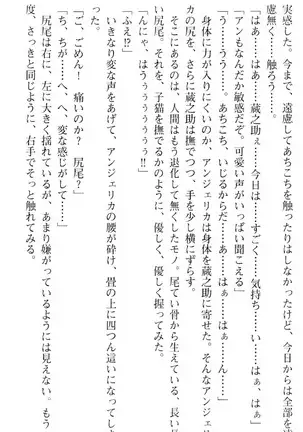 実感した。今まで、遠慮してあちこちを触ったりはしなかったけど、今日からは全部を遠
慮無く、触ろう……。
「はぁ……はぁ……蔵之助ぇ……今日は……すごく……気持ち……い……はぁ、はぁ」
「アンもなんだか敏感だぞ。可愛い声がいっぱい聞こえる」
「う……うう……、あちこち、いじるからだ……あっ……はぁ……はぁ……」
身体に力が入りにくいのか、アンジェリカは身体を蔵之助に寄せた。そんなアンジェリ
カの尻を、さらに蔵之助は撫でつつ、手を少し横にずらす。
そこにあるのは、人間はもう退化して無くしたモノ。尾てい骨から生えている、長い
い尻尾。それを、子猫を撫でるかのように、優しく、優しく握ってみた。
「んにゃ、はうぅぅぅぅぅぅ!!」
「ふえ!?」
いきなり変な声をあげて、アンジェリカの腰が砕け、畳の上に四つん這いになってしま
った。
「ご、ごめん！　痛いのか？　尻尾？」
「ち、ちが……へ、へ、変な感じがして……」
尻尾は右に、左に大きく揺れているが、あまり嫌がっているようには見えない。もう
度、さっきと同じように、右手でそっと触れてみる。